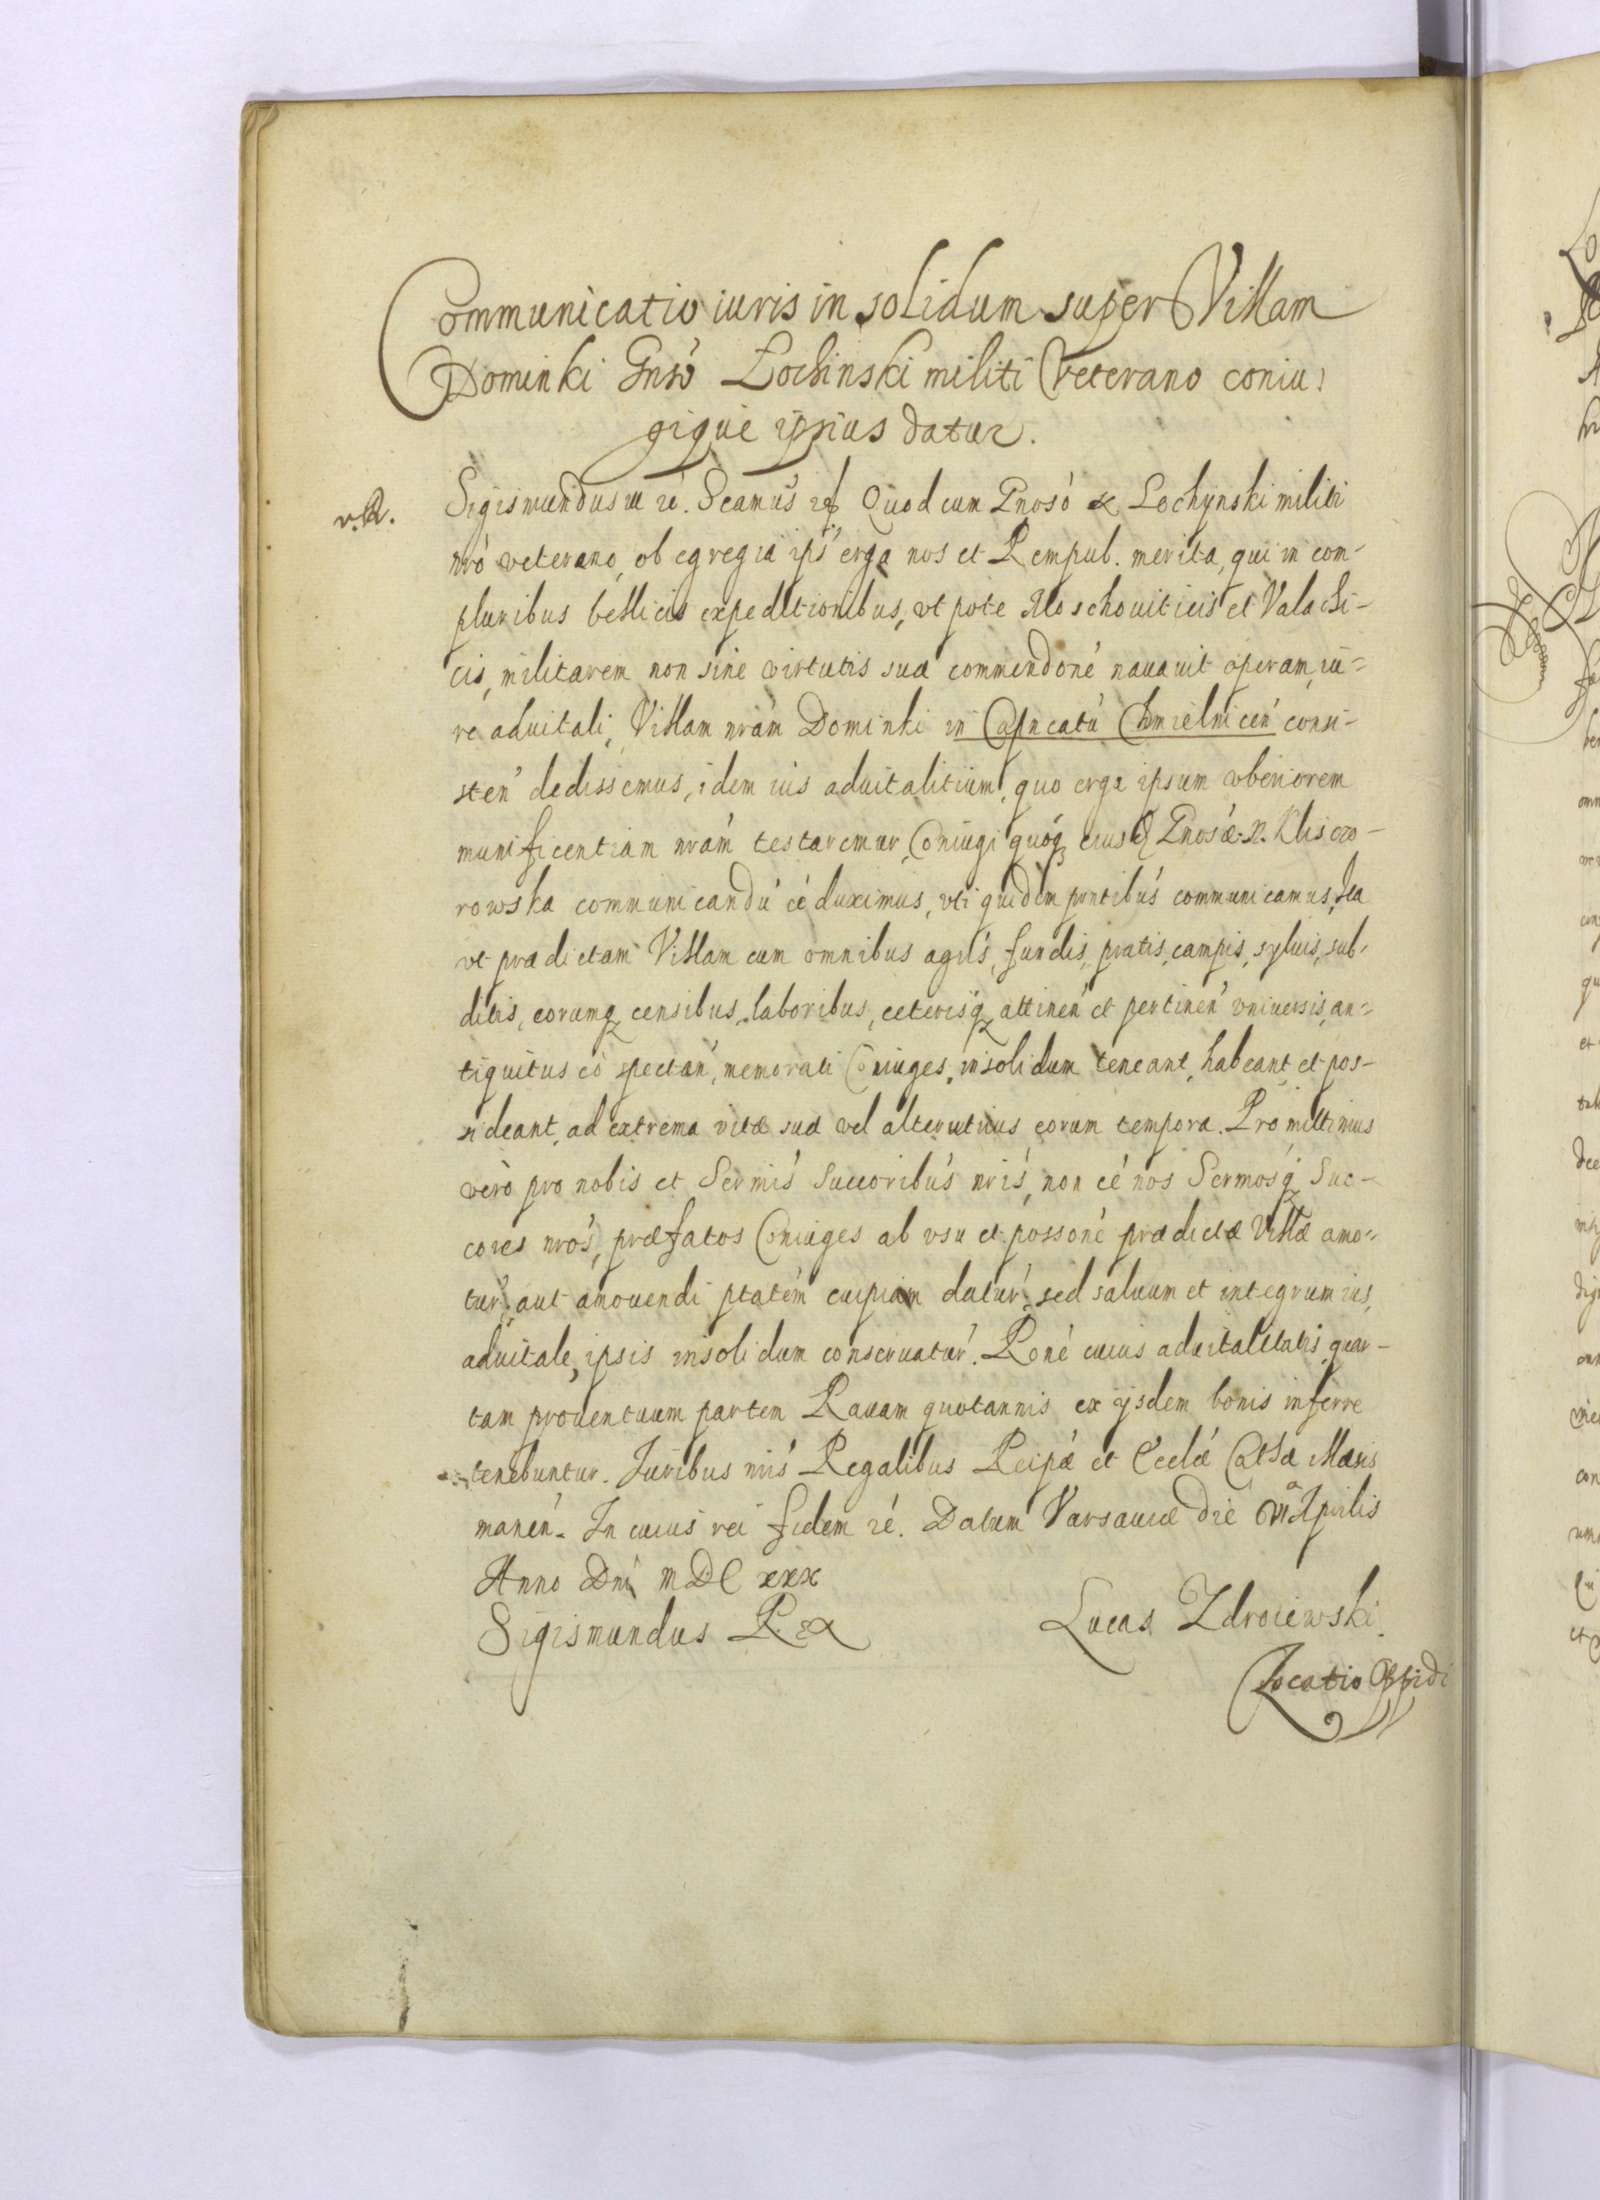 Communicatio iuris in solidum super Villam
Dominki Gnso Lochinski militi Veterano coniu:
gique ipsius datur.
v.R.
Sigismundus III ré. Scamus Quod cum Gnoso Lochynski militi
nró veterano, ob egregia ips' erga nos et Rempub. merita, qui in com-
pluribus bellicis expeditionibus, vt pote Moschouiticis et Valachi-
cis, militarem non sine virtutis suæ commendoné nauauit operam, iu-
re aduitali, Villam nrám Dominki in Capncatú Chmielnicen' consi-
sten' dedissemus, idem ius aduitalitium, quo erga ipsum vberiorem
munificentiam nrám testaremur, Coniugi quóq eius Gnosæ. N. Kliszo-
rowska communicandú eé duximus, vti quidem pnntibús communicamus, Ita
vt prædictam Villam cum omnibus agris, fundis, pratis, campis, syluis, sub-
ditis, eorumq censibus, laboribus, ceterisq attinen' et pertinen' vniuersis, an-
tiquitus eó spectan', memorati Coniuges, insolidum teneant, habeant et pos-
sideant, ad extrema vitæ suæ vel alterutrius eorum tempora. Promittimus
verò pro nobis et Sermis' Succoribús nris', non eé nos Sermosq Suc-
cores nrós, præfatos Coniuges ab vsu et possoné prædictæ Villæ amo-
tur', aut amouendi ptatém cuipiam datur', sed saluum et integrum ius,
aduitale, ipsis insolidum conseruatur'. Roné cuius aduitalitatis, quar-
tam prouentuum partem Rauam quotannis ex ijsdem bonis inferre
tenebuntur. Iuribus nris' Regalibus Reipæ et Ecclæ Cathæ Maxis
manén. In cuius rei fidem ré. Datum Varsauiæ die VI Aprilis
Anno Dni MDC xxx
Sigismundus Rex
Lucas Zdroiewski.
Locatio Oppidi